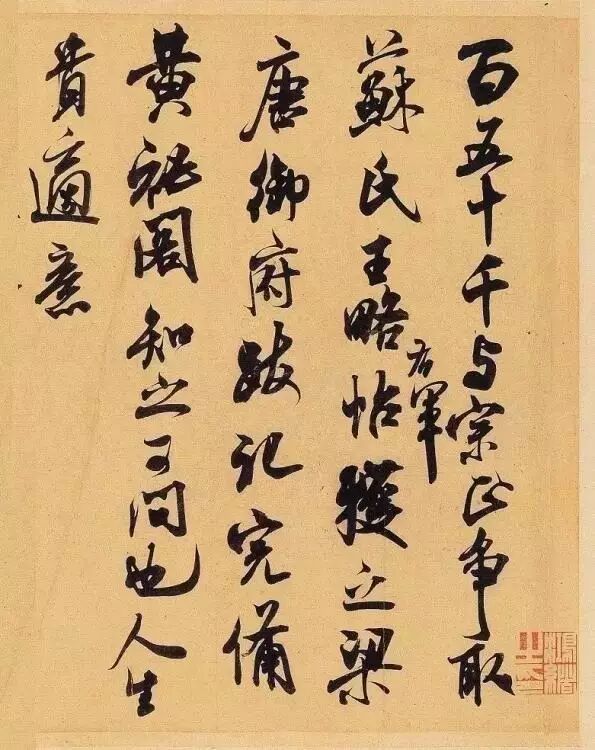 百五十千与宗正争取
蘇氏王略帖獲之梁
右軍
唐御府跋記完備
黄祕閣知之可問也人生
貴適意